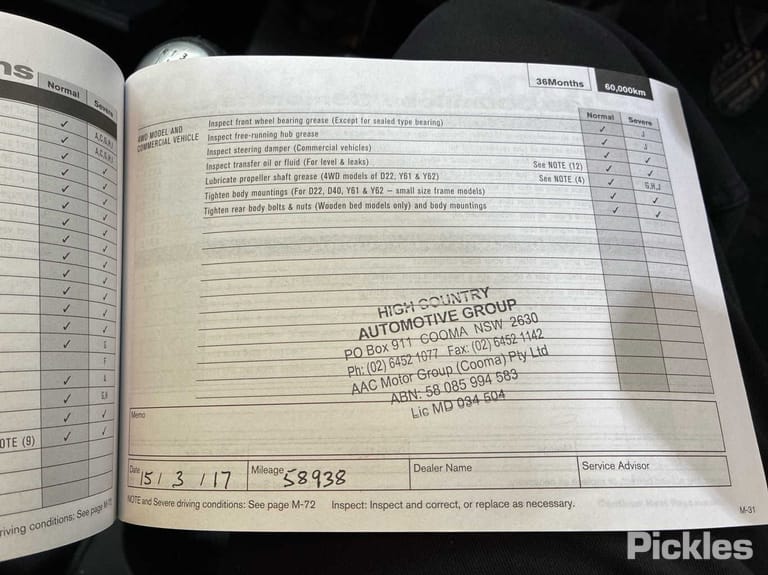 ns
Normal
Severe
A,C,G,H,I
A,C,G,H,I
G
F
A
G,H
OTE (9)
riving conditions: See page M-70
36Months
60,000km
Normal
Severe
4WD MODEL AND
COMMERCIAL VEHICLE
Inspect front wheel bearing grease (Except for sealed type bearing) ✓ J
Inspect free-running hub grease ✓ J
Inspect steering damper (Commercial vehicles) ✓ ✓
Inspect transfer oil or fluid (For level & leaks) See NOTE (12) ✓ ✓
Lubricate propeller shaft grease (4WD models of D22, Y61 & Y62) See NOTE (4) ✓ G,H,J
Tighten body mountings (For D22, D40, Y61 & Y62 – small size frame models) ✓ ✓
Tighten rear body bolts & nuts (Wooden bed models only) and body mountings ✓ ✓
HIGH COUNTRY
AUTOMOTIVE GROUP
PO Box 911 COOMA NSW 2630
Ph: (02) 6452 1077 Fax: (02) 6452 1142
AAC Motor Group (Cooma) Pty Ltd
ABN: 58 085 994 583
Lic MD 034 504
Memo
Date 15 / 3 / 17 Mileage 58938 Dealer Name Service Advisor
NOTE and Severe driving conditions: See page M-72 Inspect: Inspect and correct, or replace as necessary.
M-31
Pickles